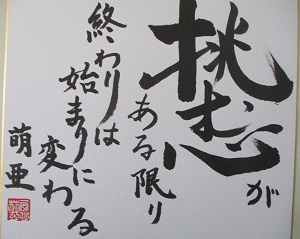 挑む心が
ある限り
終わりは
始まりに
変わる
萌亜